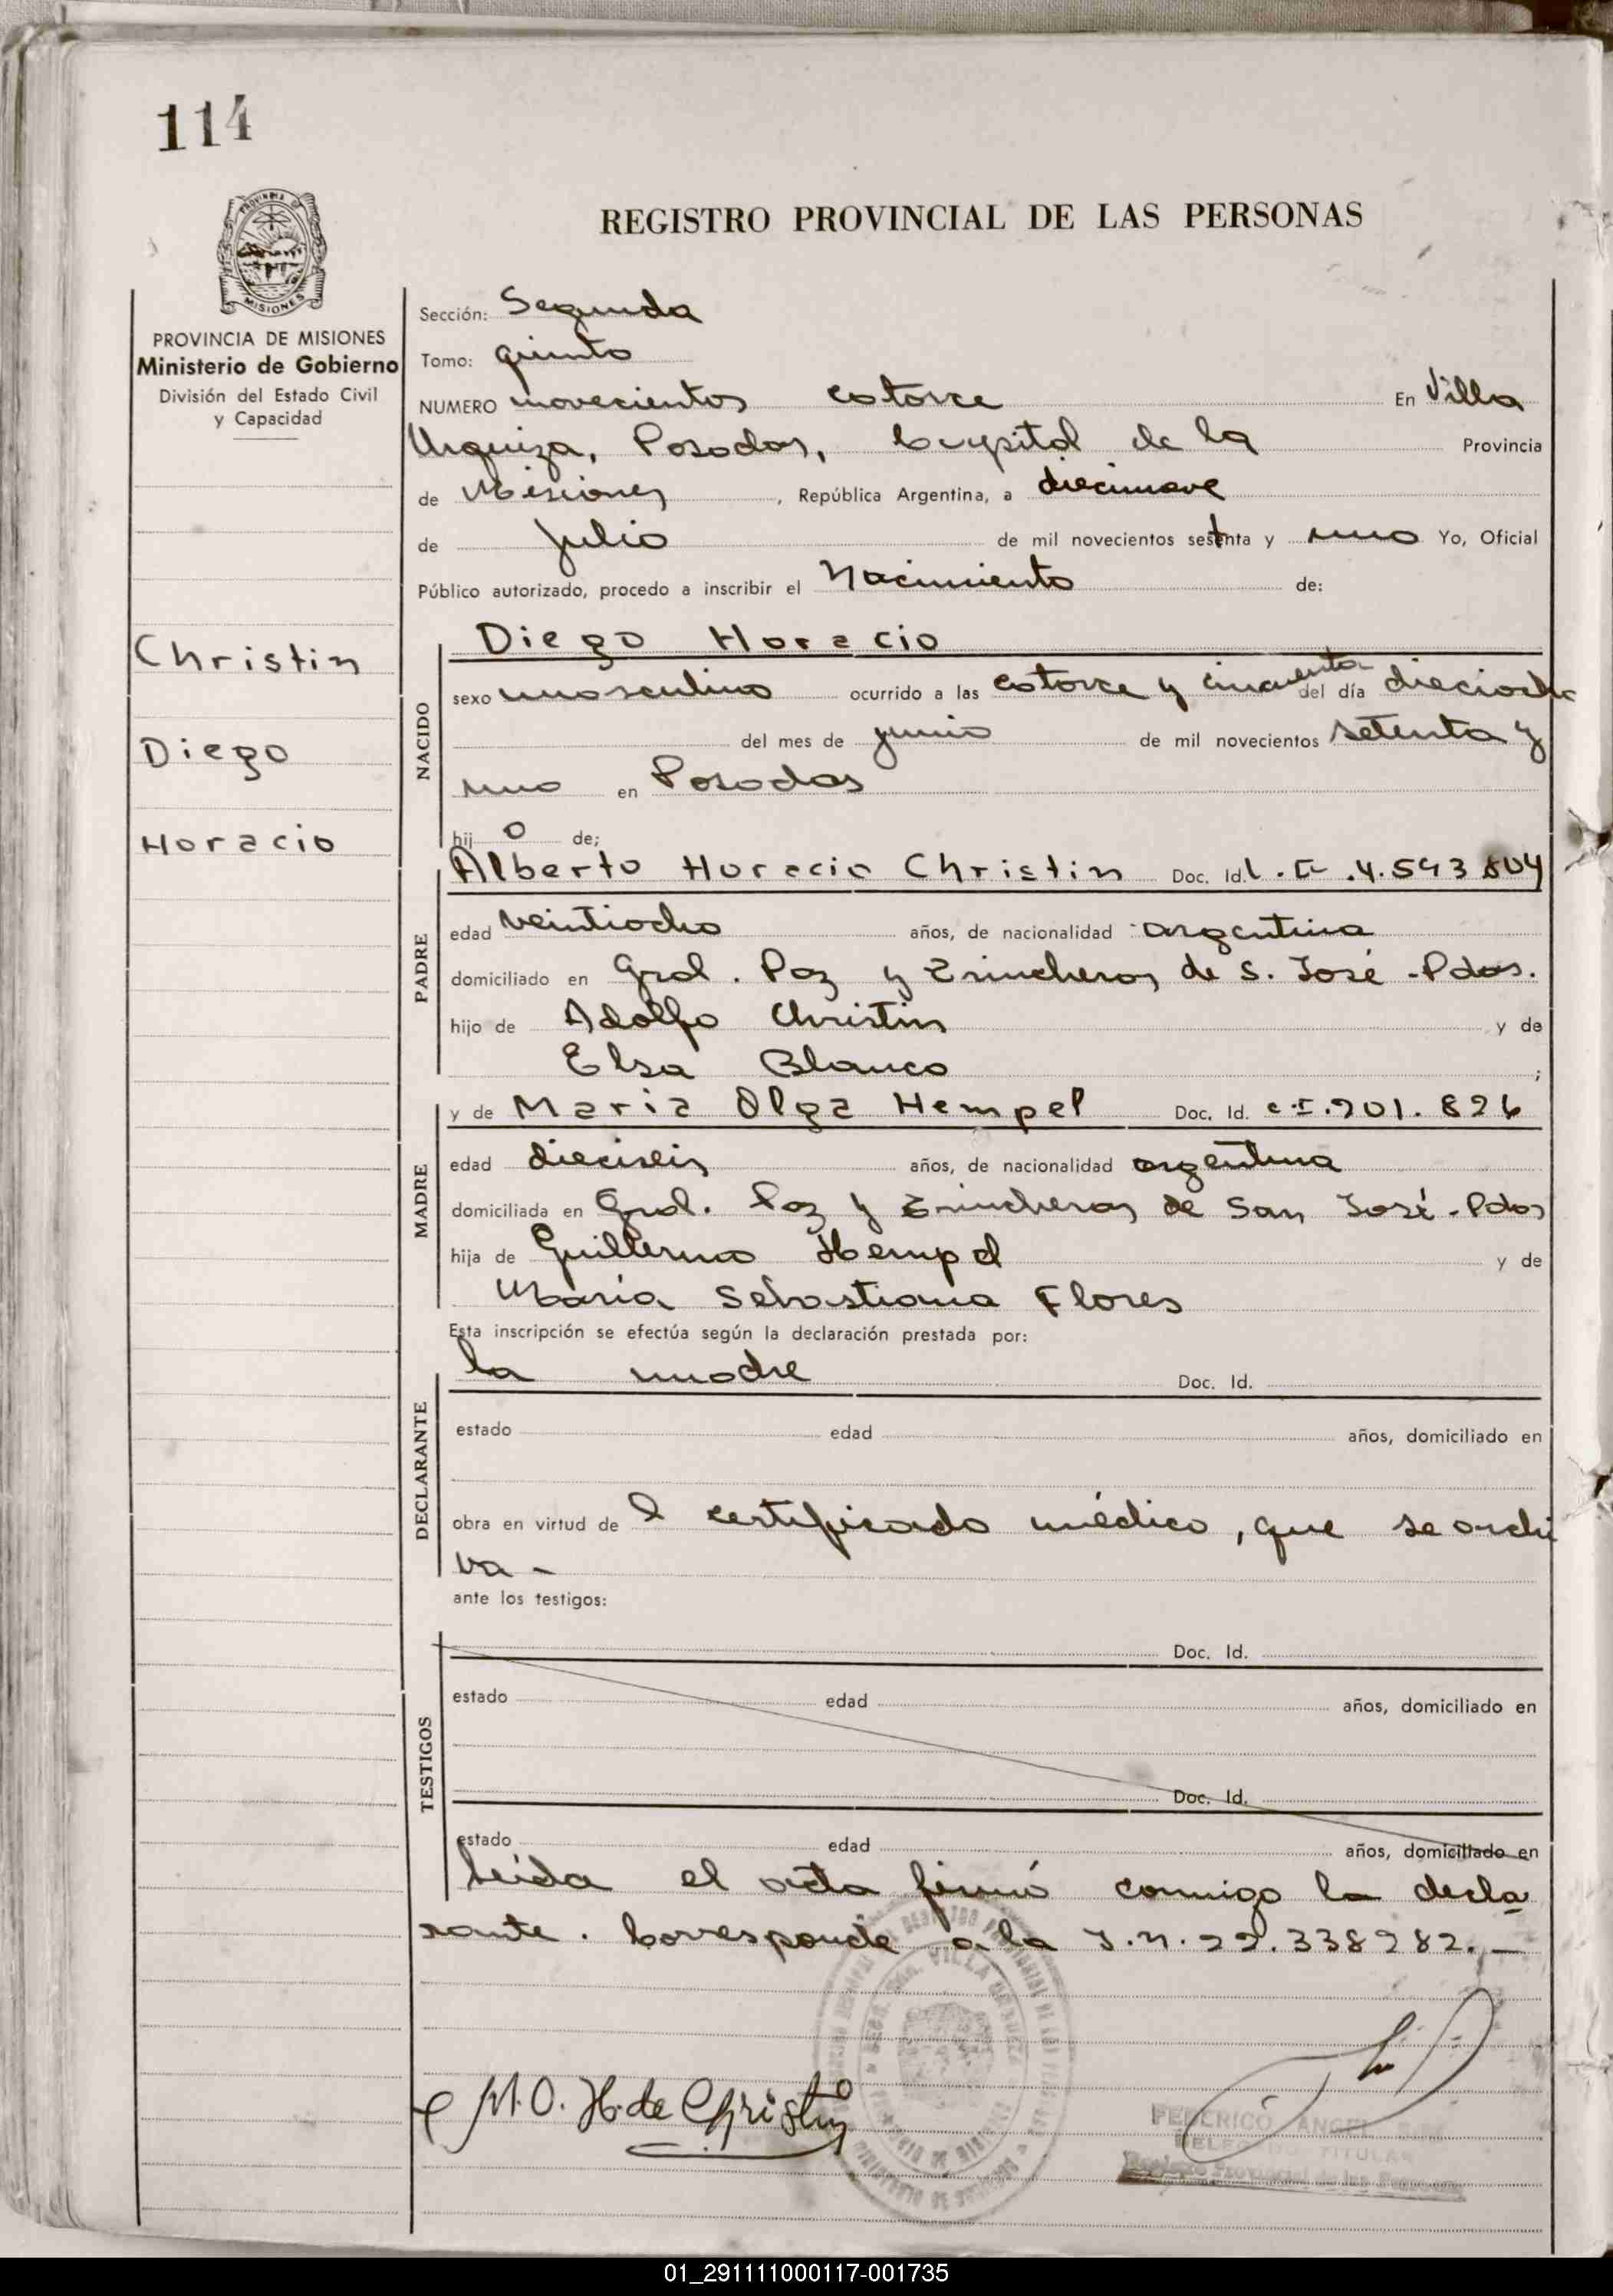 114
REGISTRO PROVINCIAL DE LAS PERSONAS
PROVINCIA DE MISIONES
Ministerio de Gobierno
División del Estado Civil
y Capacidad
Christin
Diego
Horacio
Sección: Segunda
Tomo: quinto
NUMERO novecientos catorce En Villa
Urquiza, Posadas, Capital de la Provincia
de Misiones, República Argentina, a diecinueve
de Julio de mil novecientos setenta y uno Yo, Oficial
Público autorizado, procedo a inscribir el Nacimiento de:
NACIDO
Diego Horacio
sexo masculino ocurrido a las catorce y cincuenta del día dieciocho
del mes de junio de mil novecientos setenta y
uno en Posadas
hijo de;
PADRE
Alberto Horacio Christin Doc. Id. L.E.4.593804
edad veintiocho años, de nacionalidad argentina
domiciliado en Gral. Paz y Trincheras de S. José - Pdas.
hijo de Adolfo Christin y de
Elsa Blanco ;
MADRE
y de Maria Olga Hempel Doc. Id. C.I.201.826
edad dieciseis años, de nacionalidad argentina
domiciliada en Gral. Paz y Trincheras de San José - Pdas
hija de Guillermo Hempel y de
María Sebastiana Flores
Esta inscripción se efectúa según la declaración prestada por:
DECLARANTE
la madre Doc. Id.
estado edad años, domiciliado en
obra en virtud del certificado médico, que se archi
va -
ante los testigos:
TESTIGOS
Doc. Id.
estado edad años, domiciliado en
Doc. Id.
estado edad años, domiciliado en
Leída el acta firmó conmigo la decla
rante. Corresponde a la I.N.22.338282.-
M.O.H. de Christin
FEDERICO ANGEL
TITULAR
Registro Provincial de las Personas
01_291111000117-001735